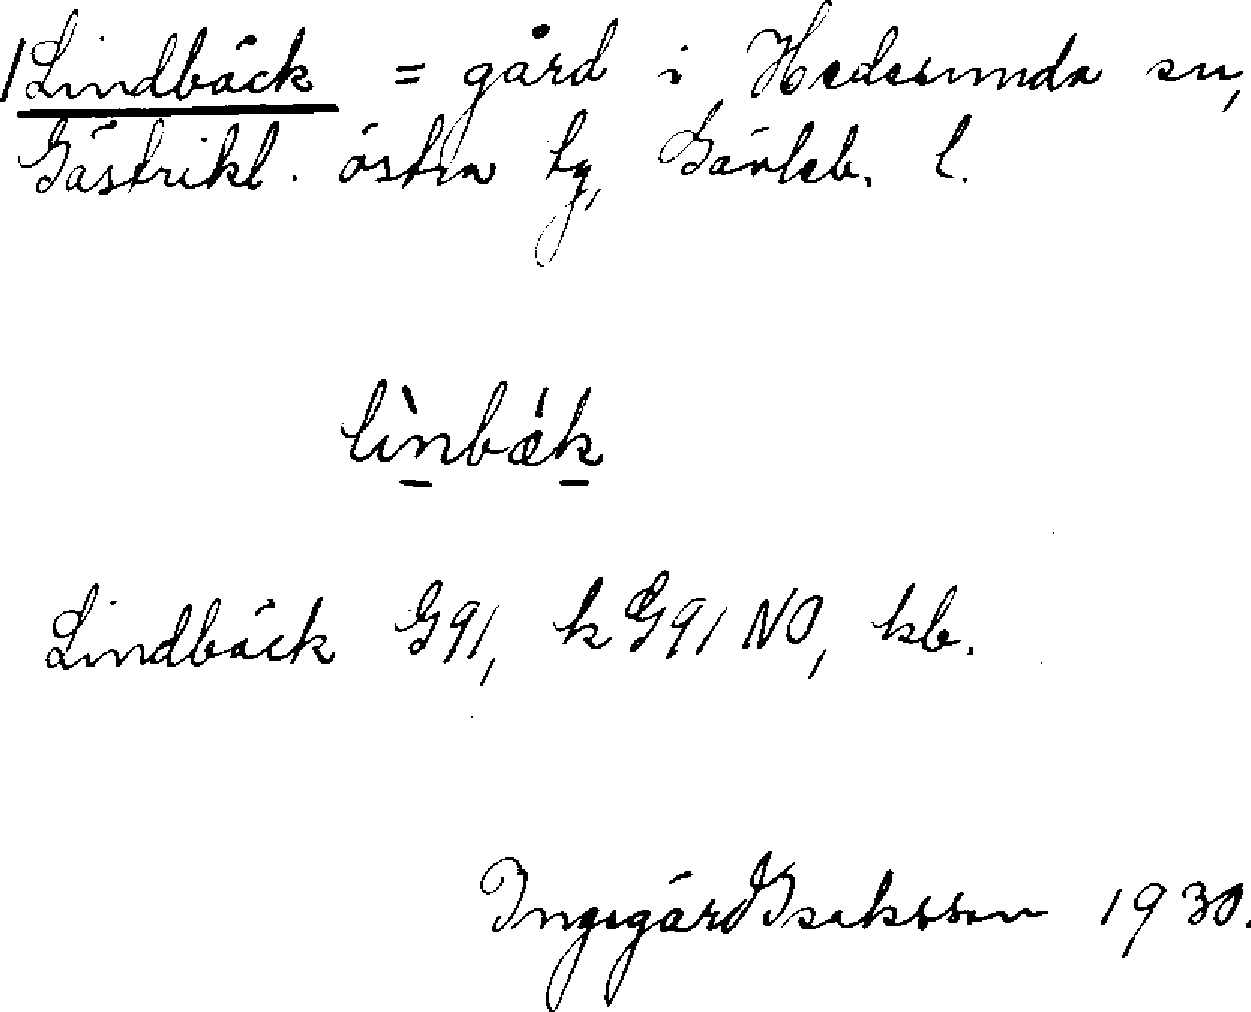 /Lindbäck = gård i Hedesunda sn,
Gästrikl. östra tg, Gävleb. l.
lìnbák
Lindbäck G91, k G91 NO, kb.
Ingegärd Isaksson 1930.